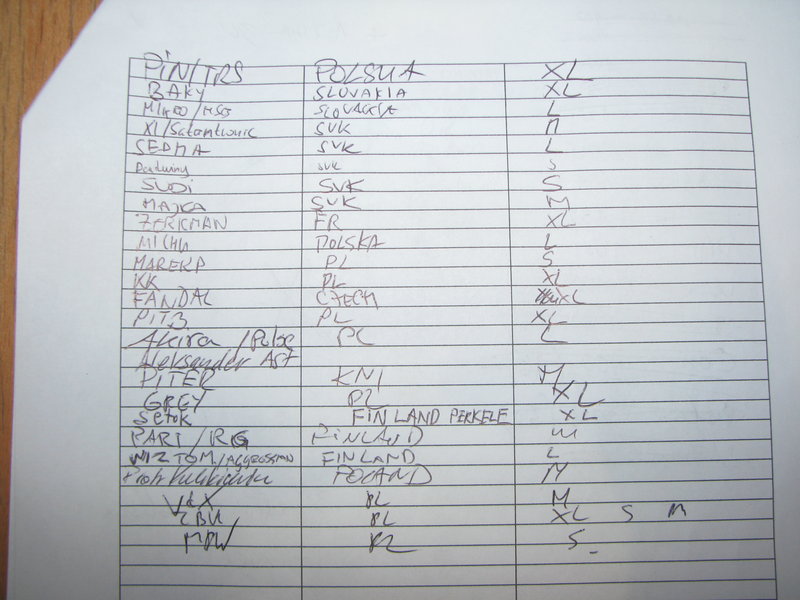 PIN/TRS POLSKA XL
BAKY SLOVAKIA XL
SLOVAKIA L
XL/Satantronic SVK M
SEDMA SVK L
SVK S
SUDI SVK S
MAJKA SVK M
ZERKMAN FR XL
MICHU POLSKA L
MAREKP PL S
KK PL XL
FANDAL CZECH XL
PITB PL XL
Akira /Pulse PL L
Aleksander AST
PITER M
GREY PL XL
Setok FINLAND PERKELE XL
PARI/RG FINLAND M
WIZTOM/AGGRESSION FINLAND L
POLAND M
PL M
PL XL S M
PL S